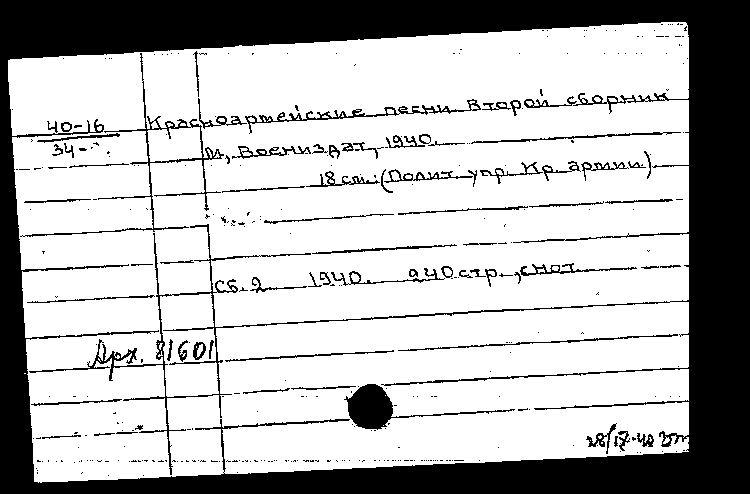 40-16 Красноартейские песни Второй сборник
34- М, Воениздат, 1940.
18 см. (Полит. упр. Кр. армии)
Сб. 2 1940. 240 стр., с нот.
Арх. 81601